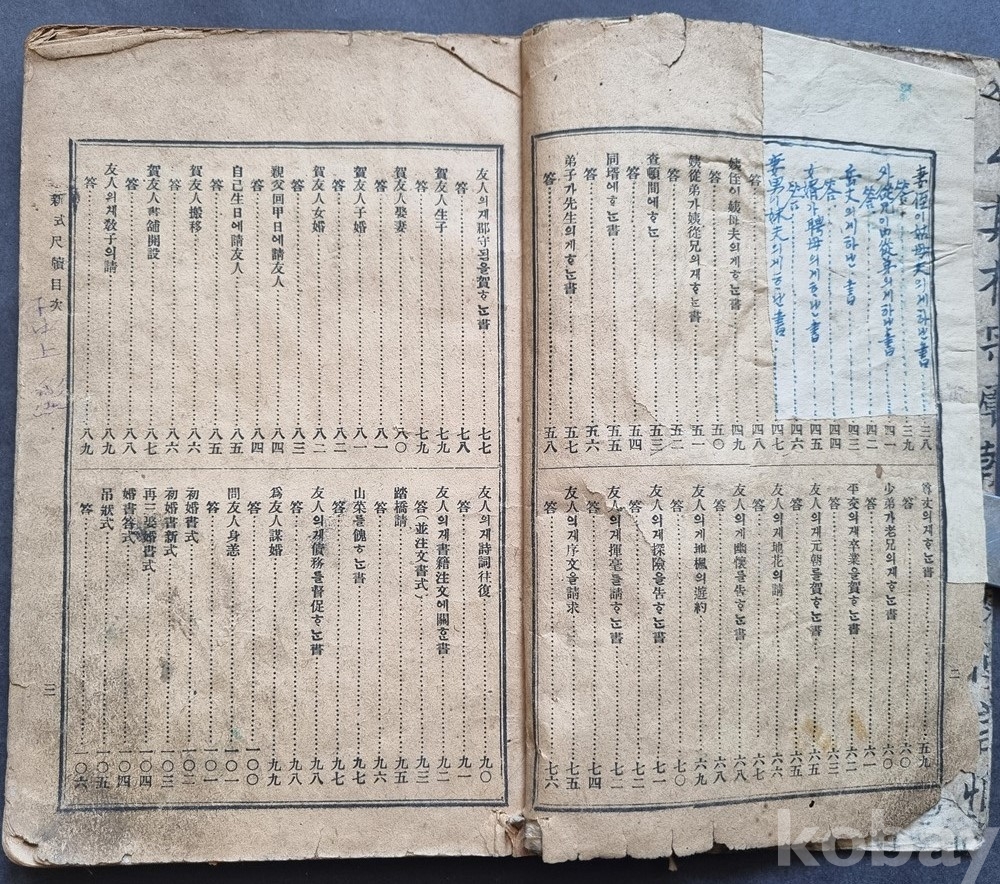 妻侄이姑母夫의게하난書 三八
答 三九
外從兄이內從弟의게하난書 四一
答 四二
岳丈의게하난書 四三
答 四四
女婿가聘母의게하난書 四五
答 四六
妻男이妹夫의게하난書 四七
答 四八
姨侄이姨母夫의게ᄒᆞᄂᆞᆫ書 四九
答 五〇
姨從弟가姨從兄의게ᄒᆞᄂᆞᆫ書 五一
答 五二
査頓間에ᄒᆞᄂᆞᆫ書 五三
答 五四
同壻에ᄒᆞᄂᆞᆫ書 五五
答 五六
弟子가先生의게ᄒᆞᄂᆞᆫ書 五七
答 五八
尊丈의게ᄒᆞᄂᆞᆫ書 五九
答 六〇
少弟가老兄의게ᄒᆞᄂᆞᆫ書 六〇
答 六一
平交의게卒業을賀ᄒᆞᄂᆞᆫ書 六二
答 六三
友人의게元朝를賀ᄒᆞᄂᆞᆫ書 六五
答 六五
友人의게地花의請 六六
答 六七
友人의게幽懷를告ᄒᆞᄂᆞᆫ書 六八
答 六八
友人의게地楓의遊約 六九
答 七〇
友人의게探險을告ᄒᆞᄂᆞᆫ書 七一
答 七二
友人의게揮毫를請ᄒᆞᄂᆞᆫ書 七二
答 七四
友人의게序文을請求 七五
答 七六
二
友人의게郡守됨을賀ᄒᆞᄂᆞᆫ書 七七
答 七八
賀友人生子 七九
答 七九
賀友人娶妻 八〇
答 八一
賀友人子婚 八一
答 八二
賀友人女婚 八二
答 八三
親友回甲日에請友人 八四
答 八四
自己生日에請友人 八五
答 八五
賀友人搬移 八六
答 八六
賀友人書舖開設 八七
答 八八
友人의게敎子의請 八九
答 八九
友人의게詩詞往復 九〇
答 九一
友人의게書籍注文에關ᄒᆞᆫ書 九二
答 並注文書式 九三
踏橋請 九五
答 九六
山菜를餽ᄒᆞᄂᆞᆫ書 九七
答 九七
友人의게債務를督促ᄒᆞᄂᆞᆫ書 九八
答 九八
爲友人謀婚 九九
答 一〇〇
問友人身恙 一〇一
答 一〇一
初婚書式 一〇二
初婚書新式 一〇三
再三娶婚書式 一〇四
婚書答式 一〇四
吊狀式 一〇五
答 一〇六
新式尺牘目次
三
kobay